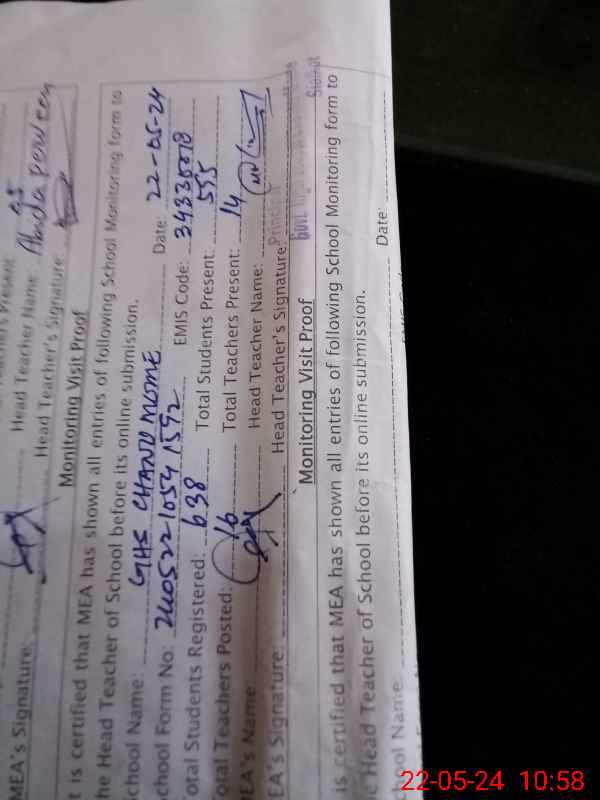 Head Teacher Name:
Head Teacher's Signature:
MEA's Signature:
Monitoring Visit Proof
t is certified that MEA has shown all entries of following School Monitoring form to
he Head Teacher of School before its online submission.
chool Name: GHS CHANU MOME Date: 22-05-24
chool Form No: 240522 1054 1592 EMIS Code: 34330078
otal Students Registered: 638 Total Students Present: 555
otal Teachers Posted: 16 Total Teachers Present: 14
EA's Name: Head Teacher Name:
EA's Signature: Head Teacher's Signature:
Monitoring Visit Proof
is certified that MEA has shown all entries of following School Monitoring form to
e Head Teacher of School before its online submission.
hool Name: Date:
22-05-24 10:58